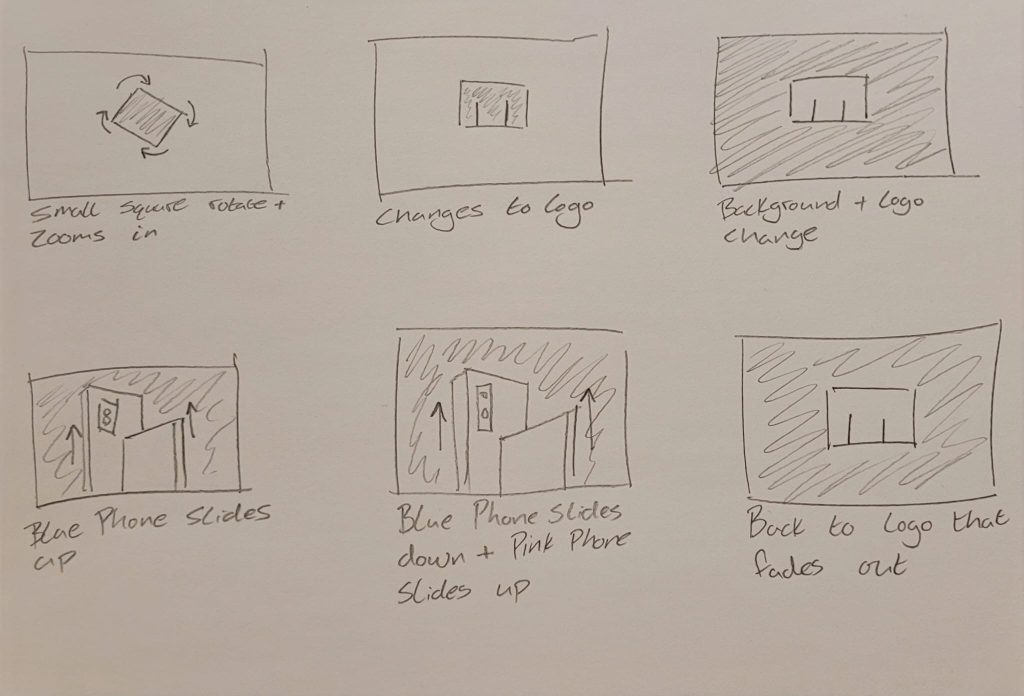 Small square rotate +
Zooms in
Changes to logo
Background + logo
change
Blue Phone slides
up
Blue Phone slides
down + Pink Phone
slides up
Back to logo that
fades out